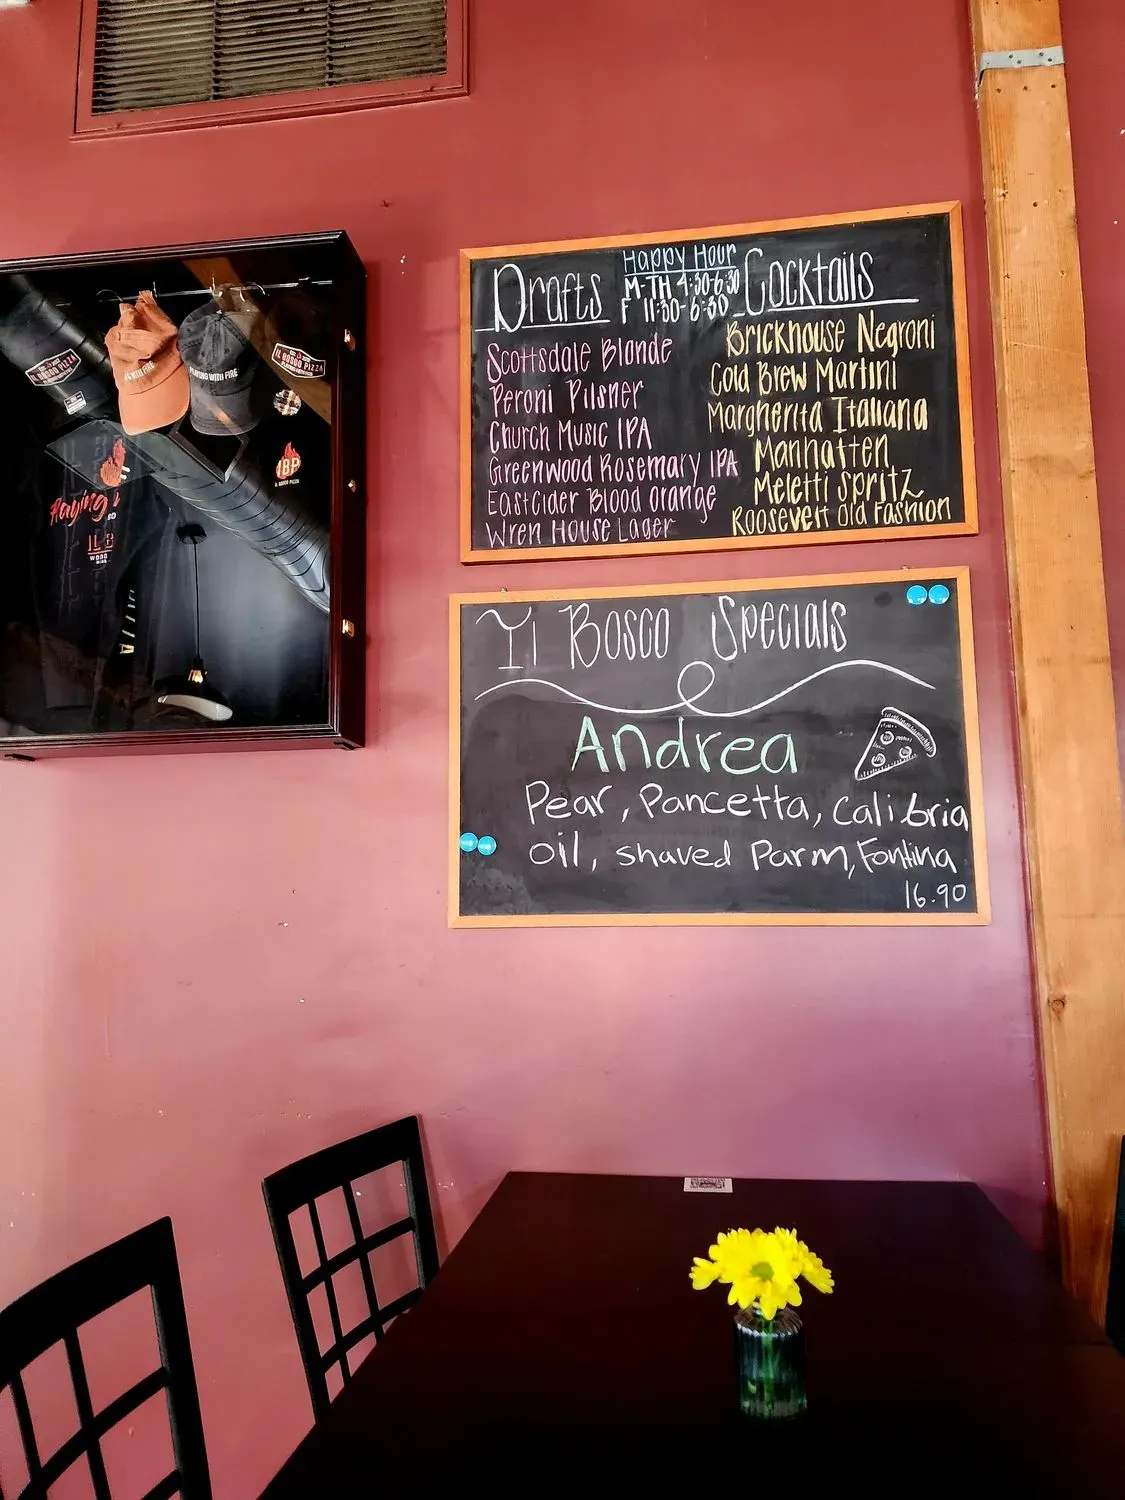 Drafts
Happy Hour
M-TH 4:30-6:30
F 11:30-6:30
Cocktails
Scottsdale Blonde
Peroni Pilsner
Church Music IPA
Greenwood Rosemary IPA
EastCider Blood orange
Wren House Lager
Brickhouse Negroni
Cold Brew Martini
Margherita Italiana
Manhatten
Meletti Spritz
Roosevelt Old Fashion
Il Bosco Specials
Andrea
Pear, Pancetta, Calibria
oil, shaved Parm, Fontina
16.90
IL BOSCO PIZZA
WITH FIRE
PLAYING WITH FIRE
IL BOSCO PIZZA
IBP
IL BOSCO PIZZA
Playing